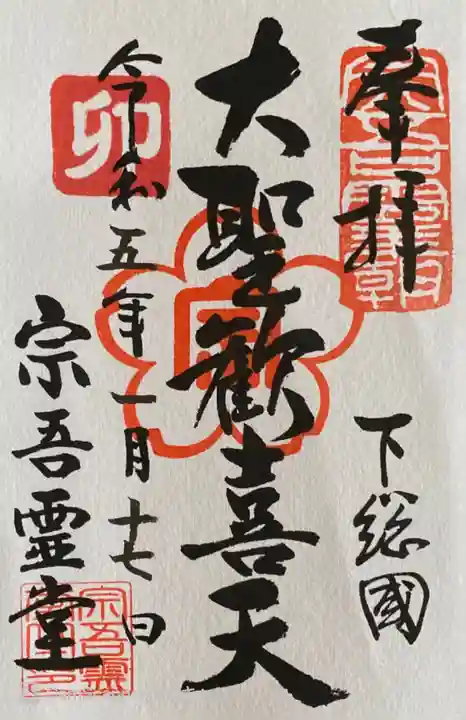 奉拝
下総國
大聖歓喜天
令和五年一月十七日
卯
宗吾霊堂